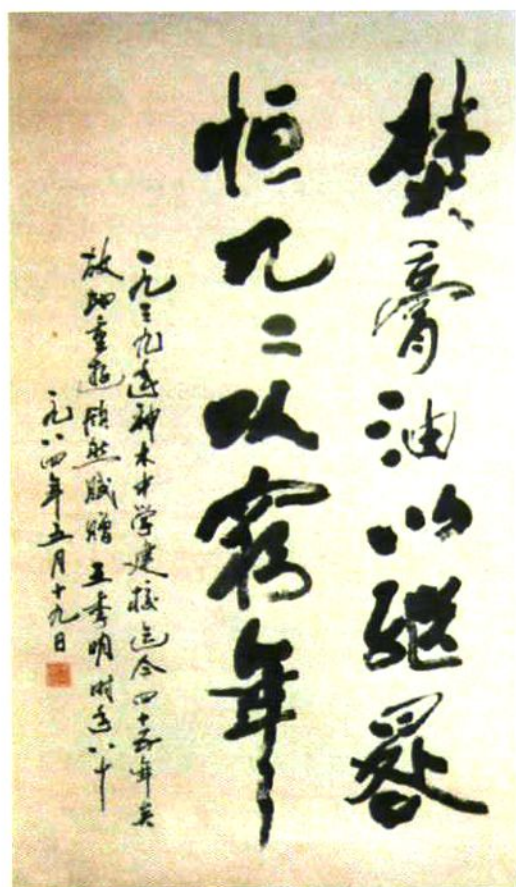 焚膏油以继晷
恒兀二以穷年
一九三九年神木中学建校迄今四十五年矣
故地重游欣然赋赠 王秀明时年八十
一九八四年五月十九日